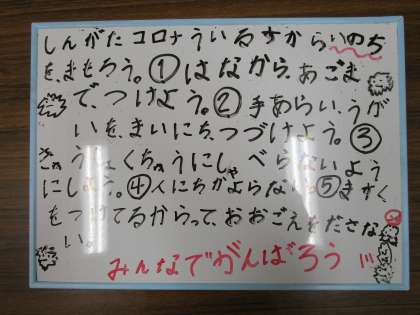 しんがたコロナういるすからいのち
を、まもろう。①はなから、あごま
で、つけよう。②手あらい、うが
いを、まいにち、つづけよう。③
きゅうしょくちゅうにしゃべらないよう
にしよう。④人にちかよらない⑤ますく
をつけてるからって、おおごえをださな
い。
みんなでがんばろう!!!